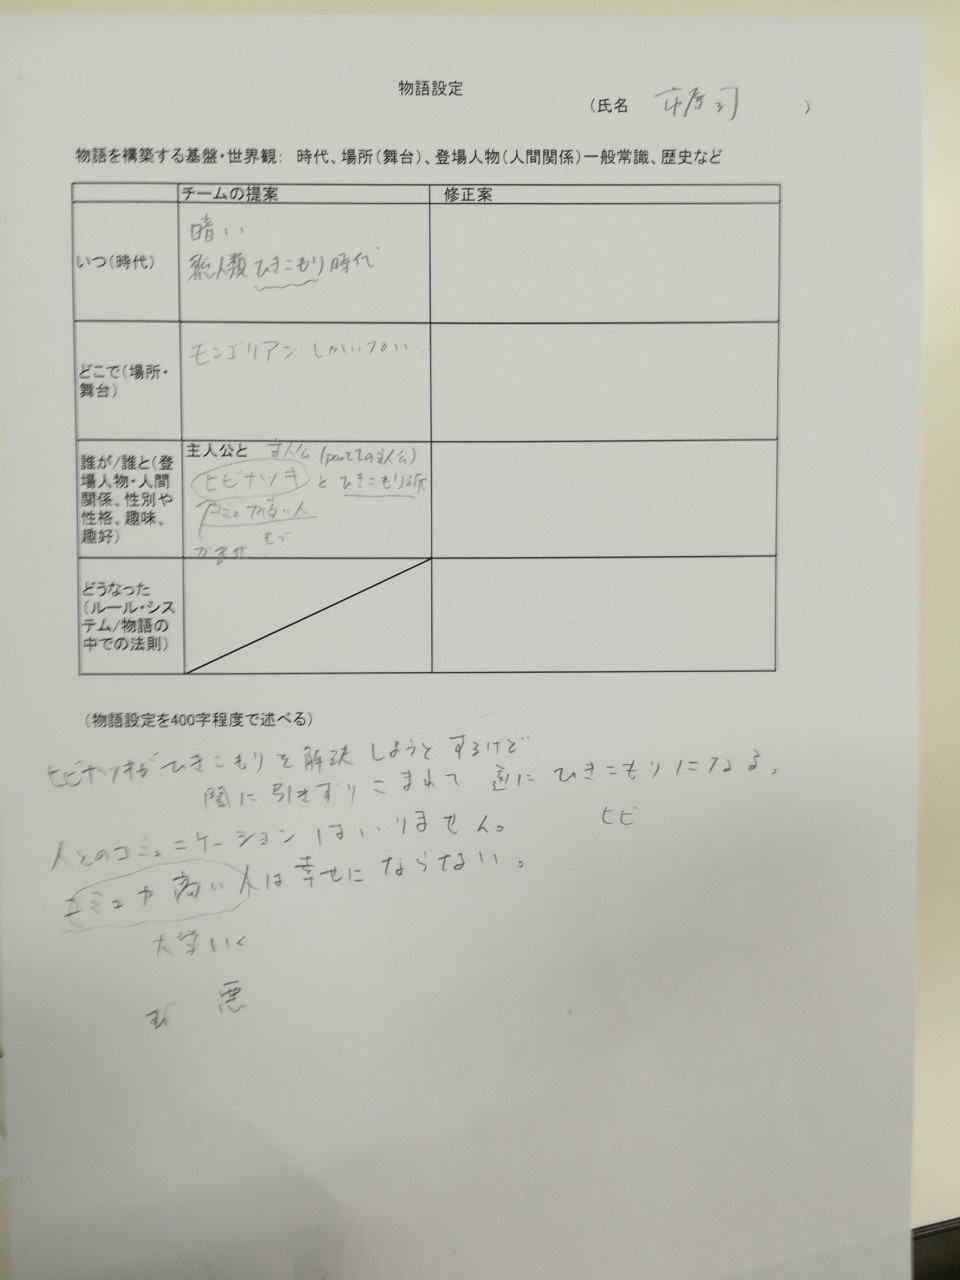 物語設定
(氏名 市原司 )
物語を構築する基盤・世界観: 時代、場所(舞台)、登場人物(人間関係)一般常識、歴史など
チームの提案 修正案
いつ(時代)
暗い
総人類ひきこもり時代
どこで(場所・舞台)
モンゴリアンしかいない
誰が/誰と(登
場人物・人間
関係、性別や
性格、趣味、
趣好)
主人公と 主人公(part1の主人公)
ヒビナツキとひきこもり
コミュ力高い人
モブ
どうなった
(ルール・シス
テム/物語の
中での法則)
(物語設定を400字程度で述べる)
ヒビナツキがひきこもりを解決しようとするけど
闇に引きずりこまれて逆にひきこもりになる。
人とのコミュニケーションはいりません。 ヒビ
コミュ力高い人は幸せにならない。
大学いく
悪